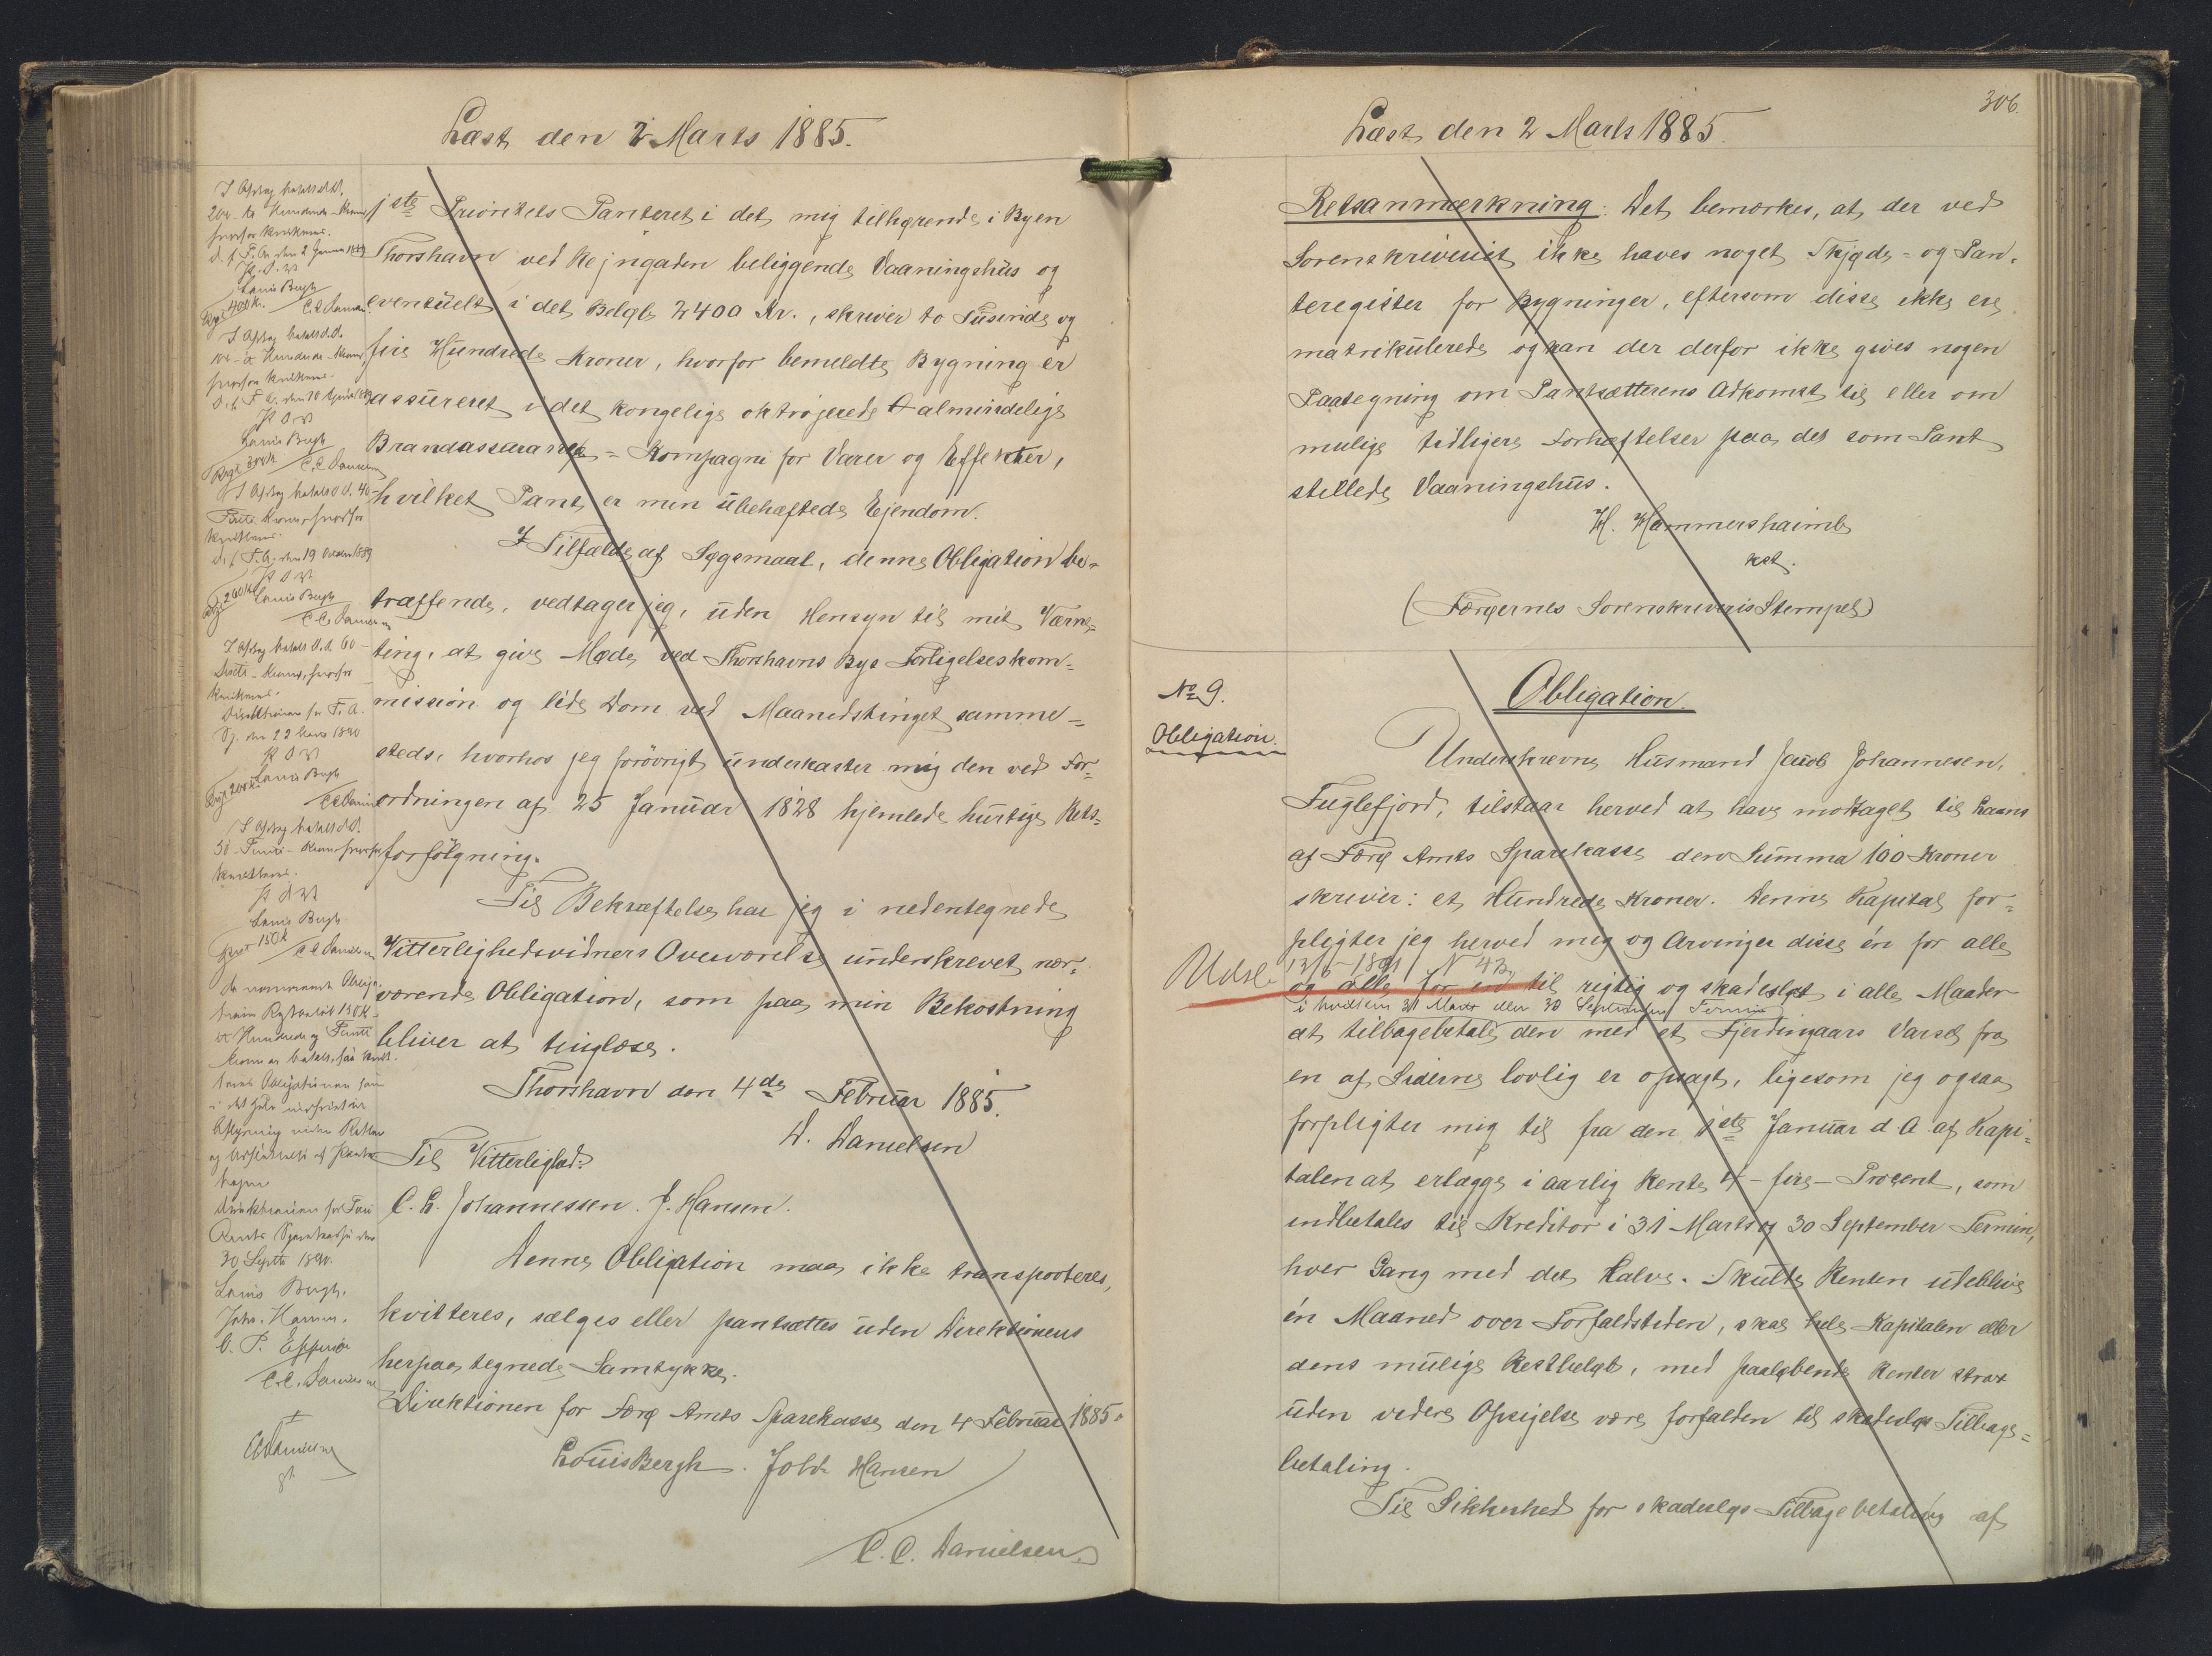 Læst den 2 Marts 1885.
I Afdrag betalt d.d.
200 - to Hundrede - Kroner
hvorfor kvitteres.
d. f. F. A. den 2 Januar
P. D. V
Louis Bergh
Rest 400 K. C.C. Danielsen
I Afdrag betalt d.d.
100 - et Hundrede - Kroner
hvorfor kvitteres.
D. f. F. A. den 10 April
P D V
Louis Bergh
Rest 300 K. C.C. Danielsen
I Afdrag betalt d.d. 40
Kroner hvorfor
kvitteres.
D. f. F. A. den 19 Octobr 1889
P D V
Rest 260 K. Louis Bergh
C.C. Danielsen
I Afdrag betalt d.d. 60 -
Kroner, hvorfor
kvitteres.
Direktionen for F. A.
Sp. den 22 Marts 1890
P D V
Rest 200 K. Louis Bergh
C.C. Danielsen
I Afdrag betalt d.d.
50 - Femti - Kroner hvorfor
kvitteres.
P D V
Louis Bergh
Rest 150 K C.C. Danielsen
Da nærværende Obliga-
tions Restbeløb 150 K -
et Hundrede og Femti
Kroner er betalt, saa kvit-
teres Obligationen som
i det hele indfriet til
Aflysning inden Retten
og Udslettelse af Pante-
bogen
Direktionen for Færø
Amts Sparekasse den
30 Septbr 1890.
Louis Bergh.
Johs. Hansen.
C.C. Danielsen
jste Prioritets Panteret i det mig tilhørende i Byen
Thorshavn ved Rejngaden beliggende Vaaningshus og
eventuelt i det Beløb 2400 Kr., skriver to Tusinde og
fire Hundrede Kroner, hvorfor bemeldte Bygning er
assureret i det kongelige oktrojerede almindelige
Brandassurance = Kompagni for Varer og Effekter,
hvilket Pant er min ubehæftede Ejendom.
I Tilfælde af Søgsmaal, denne Obligation be-
træffende, vedtager jeg, uden Hensyn til mit Værne-
ting, at give Møde ved Thorshavns Bys Forligelseskom=
mission og lide Dom ved Maanedstinget samme=
steds, hvorhos jeg forövrigt underkaster mig den ved For=
ordningen af 25 Januar 1828 hjemlede hurtige Rets=
forfölgning.
Til Bekræftelse har jeg i nedentegnede
Vitterlighedsvidners Overværelse underskrevet nær=
værende Obligation, som paa min Bekostning
bliver at tinglæse.
Thorshavn den 4de Februar 1885.
D. Danielsen
Til Vitterlighed:
C. E. Johannessen. J. Hansen.
Denne Obligation maa ikke transporteres,
kvitteres, sælges eller pantsættes uden Direktionens
herpaa tegnede Samtykke.
Direktionen for Færø Amts Sparekasse, den 4 Februar 1885.
Louis Bergh. Johs. Hansen
C. C. Danielsen
306.
Læst den 2 Marts 1885.
Retsanmærkning: Det bemærkes, at der ved
Sorenskriveriet ikke haves noget Skjøde= og Pan=
teregister for Bygninger, eftersom disse ikke ere
matrikulerede og kan der derfor ikke gives nogen
Paategning om Pantsætterens Adkomst til eller om
mulige tidligere Forhæftelser paa det som Pant
stillede Vaaningshus.
H. Hammershaimb
kst.
(Færøernes Sorenskriveris Stempel)
No 9.
Obligation.
Obligation.
Underskrevne Husmand Jacob Johannesen,
Fuglefjord, tilstaar herved at have modtaget til Laans
af Færø Amts Sparekasse den Summa 100 Kroner
skriver: et Hundrede Kroner. Denne Kapital for=
pligter jeg herved mig og Arvinger disse én for alle
Udsl. 13/5 1891 N 43
og alle for en til rigtig og skadesløst i alle Maader
i hvilken 31 Marts eller 30 September Termin
at tilbagebetale den med et Fjerdingaars Varsel fra
en af Siderne lovlig er opsagt, ligesom jeg ogsaa
forpligter mig til fra den 1ste Januar d A af Kapi=
talen at erlægge i aarlig Rente 4 - fire - Procent, som
indbetales til Kreditor i 31 Marts og 30 September Termin,
hver Gang med det Halve. Skulde Renten udeblive
én Maaned over Forfaldstiden, skal hele Kapitalen eller
dens mulige Restbeløb, med paaløbende Renter strax
uden videre Opsigelse være forfalden til skadesløs Tilbage=
betaling.
Til Sikkerhed for skadesløs Tilbagebetaling af